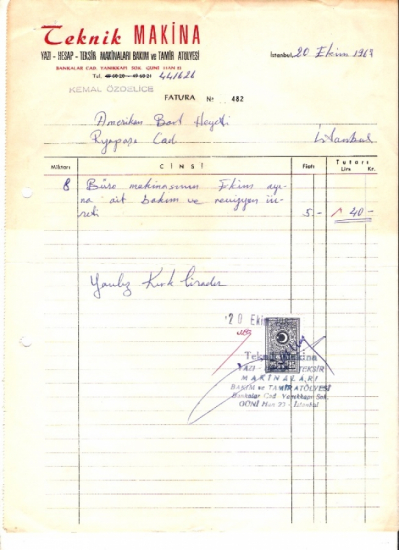 Teknik MAKİNA
YAZI - HESAP - TEKSİR MAKİNALARI BAKIM ve TAMİR ATÖLYESİ
BANKALAR CAD. YANIKKAPI SOK. GÜNİ HAN 22
Tel. 49 60 20 - 49 60 21 441626
İstanbul, 20 Ekim 1967
KEMAL ÖZDELİCE
FATURA No. 482
Amerikan Bort Heyeti
Rızapaşa Cad İstanbul
Miktarı CİNSİ Fiatı Tutarı
Lira Kr.
8 Büro makinasının Ekim ayı-
na ait bakım ve revizyon üc-
reti 5.- 40-
Yanlız Kırk liradır
20 Ekim
Teknik Makina
YAZI - TEKSİR
MAKİNALARI
BAKIM ve TAMİR ATÖLYESİ
Bankalar Cad. Yanıkkapı Sok.
GÜNİ Han 22 - İstanbul